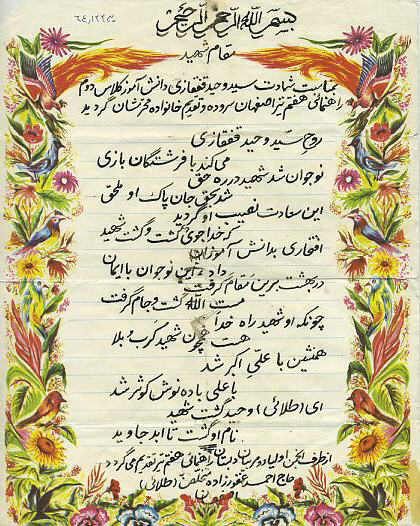 بسم الله الرحمن الرحیم
۶۴/۱۲/۲۳
مقام شهید
بمناسبت شهادت سید وحید قفقازی دانش آموز کلاس دوم
راهنمائی هفتم تیر اصفهان سروده و تقدیم خانواده محترمشان گردید
روح سیّد وحید قفقازی
می کند با فرشتگان بازی
نوجوان شد شهید در ره حق
شد بحق جان پاک او ملحق
این سعادت نصیب او گردید
که خدا جوی گشت و گشت شهید
افتخاری بدانش آموزان
داد، این نوجوان با ایمان
در بهشت برین مقام گرفت
مست الله گشت و جام گرفت
چونکه او شهید راه خدا
هست همچون شهید کرب و بلا
همنشین با علیّ اکبر شد
با علی باده نوش کوثر شد
ای (طلائی) وحید گشت شهید
نام او گشت تا ابد جاوید
از طرف انجمن اولیاء و مربیان دبستان راهنمائی هفتم تیر تقدیم می گردد
حاج احمد غفورزاده متخلص (طلائی)